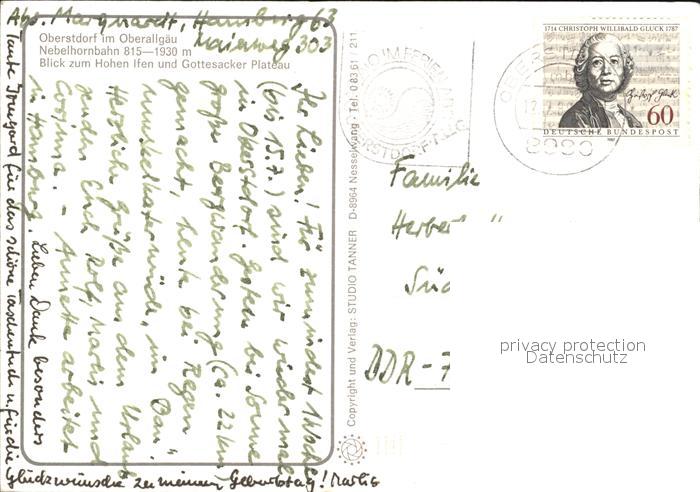 Abs. Marquardt, Hamburg 63
Maienweg 303
Oberstdorf im Oberallgäu
Nebelhornbahn 815—1930 m
Blick zum Hohen Ifen und Gottesacker Plateau
Ihr Lieben! Für zumindest 1 Woche
(bis 15.7.) sind wir wieder mal
in Oberstdorf. Gestern bei Sonne
große Bergwanderung (ca. 22 km
gemacht, heute bei Regen "
muskelkatermüde" im Bau.
Herzliche Grüße aus dem Urlaub
Euch Rolf, und
Corinna. - Annette arbeitet
in Hamburg. Lieben Dank besonders
Tante Irmgard für das schöne Taschentuch u. für die
Glückwünsche zu meinem Geburtstag!
Copyright und Verlag: STUDIO TANNER D-8964 Nesselwang · Tel. 0 83 61 / 211
OBERSTDORF
8980
1714 CHRISTOPH WILLIBALD GLUCK 1787
60
DEUTSCHE BUNDESPOST
Familie
Herbert
DDR-7
privacy protection
Datenschutz